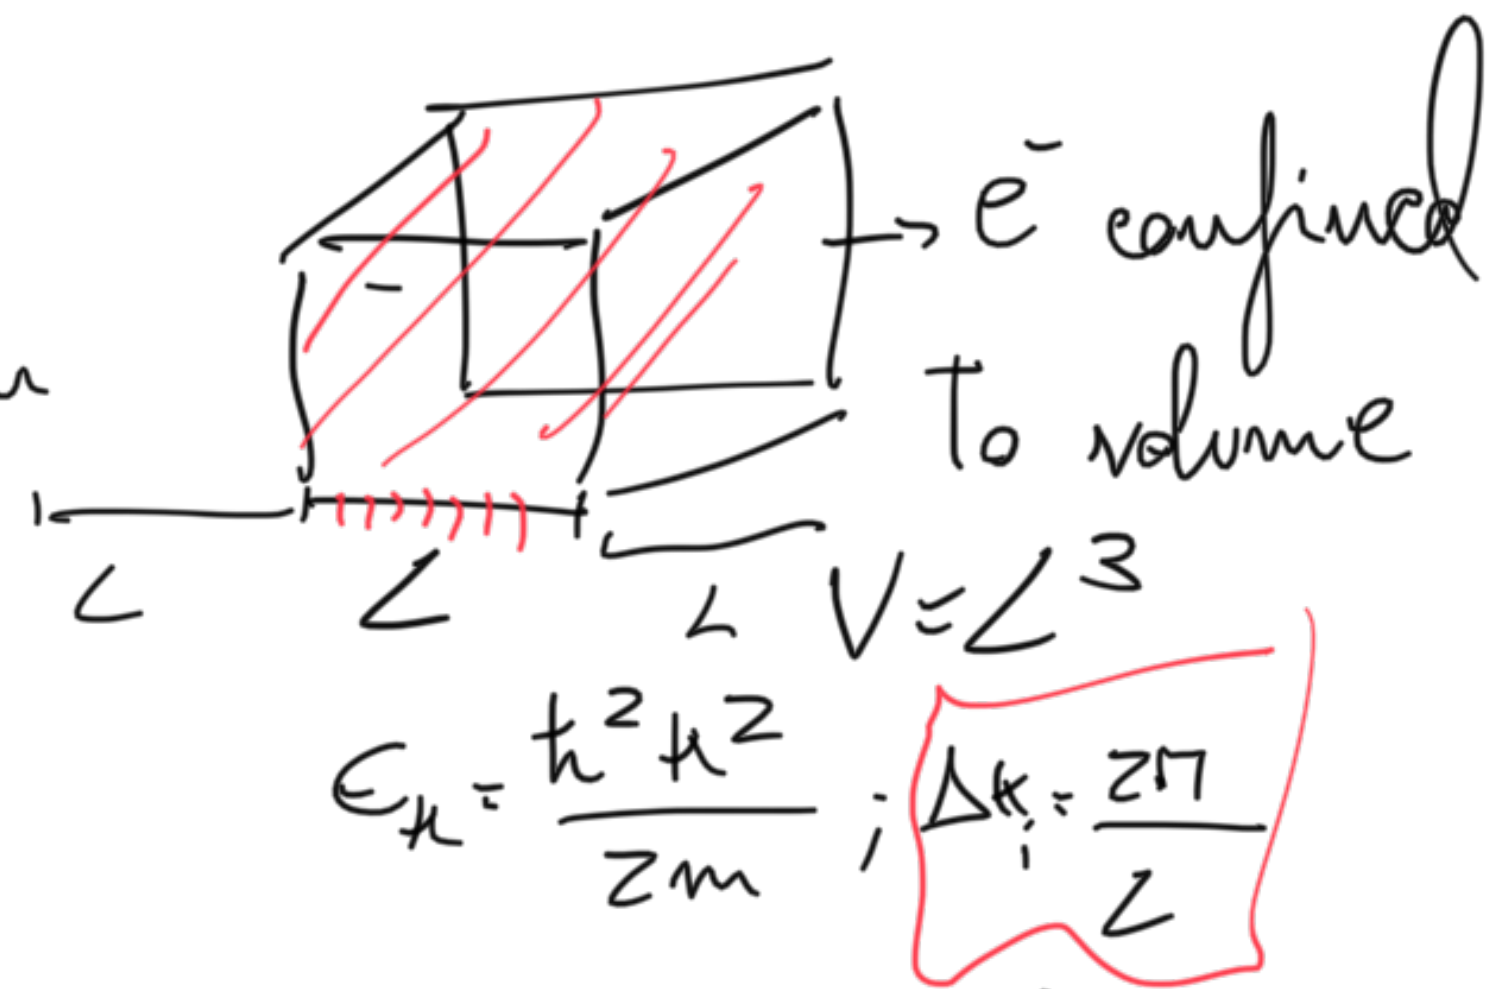 e⁻ confined
to volume
L L L V=L³
ϵₖ = ħ²k²/2m ; Δkᵢ = 2π/L